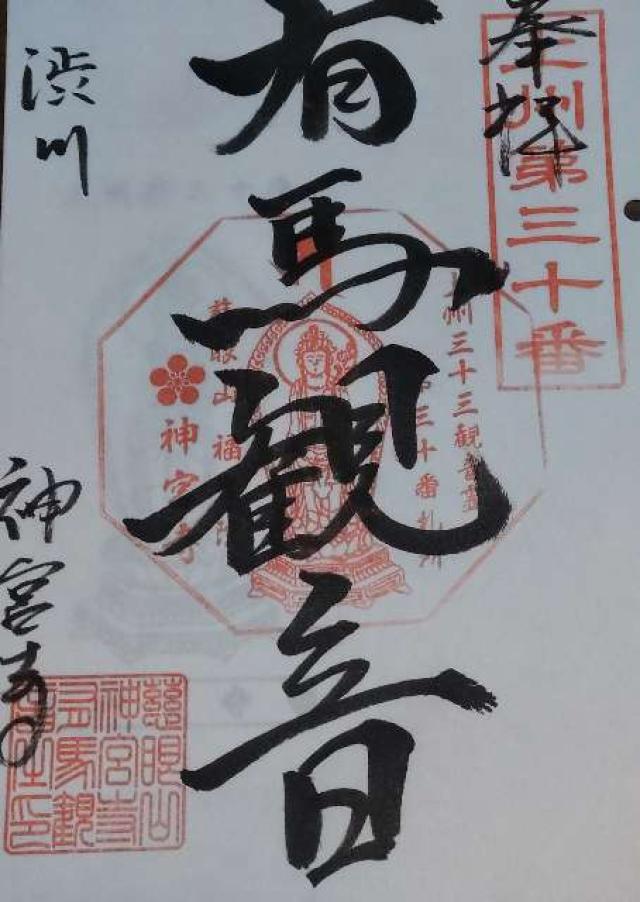 奉拝
上州第三十番
有馬観音
州三十三観音霊
第三十番札所
慈眼山福
神宮寺
渋川
神宮寺
慈眼山
神宮寺
有馬観